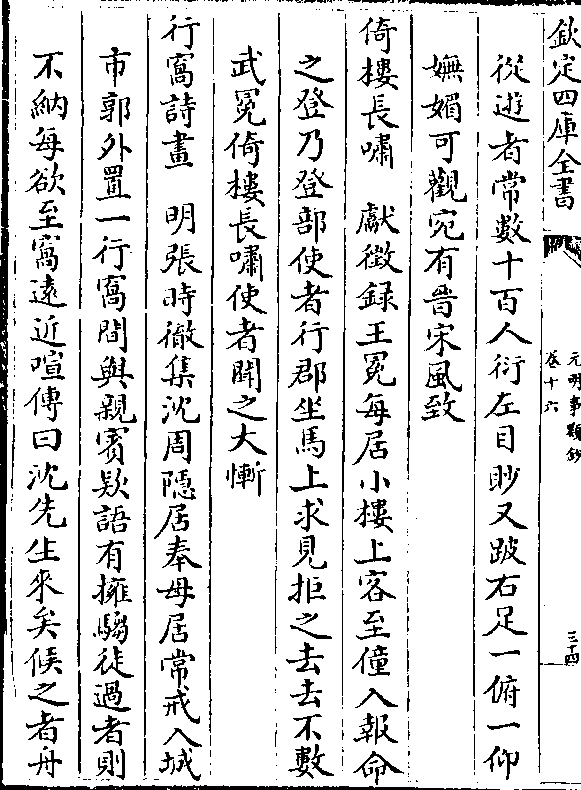 欽定四庫全書
元明事類鈔
卷十六
三十四
從遊者常數十百人衍左目眇又跛右足一俯一仰
嫵媚可觀宛有晉宋風致
倚樓長嘯　獻徵録王冕每居小樓上客至僮入報命
之登乃登部使者行郡坐馬上求見拒之去去不數
武冕倚樓長嘯使者聞之大慚
行窩詩畫　明張時徹集沈周隱居奉母居常戒入城
市郭外置一行窩間與親賓欵語有擁騶徒過者則
不納每欲至窩遠近喧傳曰沈先生來矣候之者舟